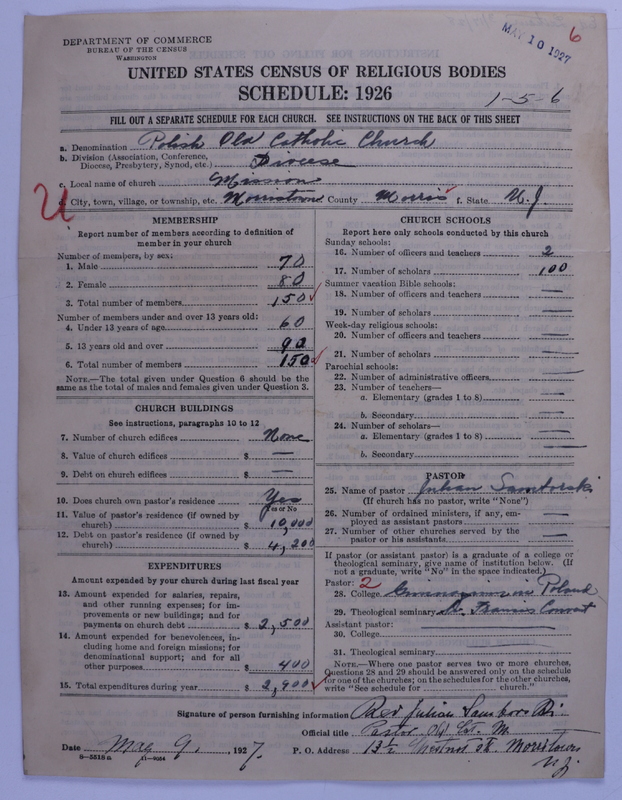 DEPARTMENT OF COMMERCE
BUREAU OF THE CENSUS
WASHINGTON
MAY 10 1927
6
UNITED STATES CENSUS OF RELIGIOUS BODIES
SCHEDULE: 1926
1-5-6
FILL OUT A SEPARATE SCHEDULE FOR EACH CHURCH. SEE INSTRUCTIONS ON THE BACK OF THIS SHEET
a. Denomination Polish Old Catholic Church
b. Division (Association, Conference,
Diocese, Presbytery, Synod, etc.) Diocese
c. Local name of church Mission
U
d. City, town, village, or township, etc. Morristown County Morris f. State N.J.
MEMBERSHIP
Report number of members according to definition of
member in your church
Number of members, by sex:
1. Male 70
2. Female 80
3. Total number of members 150
Number of members under and over 13 years old:
4. Under 13 years of age 60
5. 13 years old and over 90
6. Total number of members 150
NOTE.—The total given under Question 6 should be the
same as the total of males and females given under Question 3.
CHURCH BUILDINGS
See instructions, paragraphs 10 to 12
7. Number of church edifices None
8. Value of church edifices $ —
9. Debt on church edifices $ —
10. Does church own pastor's residence Yes
Yes or No
11. Value of pastor's residence (if owned by
church) $ 10,000
12. Debt on pastor's residence (if owned by
church) $ 4,200
EXPENDITURES
Amount expended by your church during last fiscal year
13. Amount expended for salaries, repairs,
and other running expenses; for im-
provements or new buildings; and for
payments on church debt $ 2,500
14. Amount expended for benevolences, in-
cluding home and foreign missions; for
denominational support; and for all
other purposes $ 400
15. Total expenditures during year $ 2,900
CHURCH SCHOOLS
Report here only schools conducted by this church
Sunday schools:
16. Number of officers and teachers 2
17. Number of scholars 100
Summer vacation Bible schools:
18. Number of officers and teachers —
19. Number of scholars —
Week-day religious schools:
20. Number of officers and teachers —
21. Number of scholars —
Parochial schools:
22. Number of administrative officers —
23. Number of teachers—
a. Elementary (grades 1 to 8) —
b. Secondary —
24. Number of scholars—
a. Elementary (grades 1 to 8) —
b. Secondary —
PASTOR
25. Name of pastor Julian
(If church has no pastor, write "None")
26. Number of ordained ministers, if any, em-
ployed as assistant pastors —
27. Number of other churches served by the
pastor or his assistants —
If pastor (or assistant pastor) is a graduate of a college or
theological seminary, give name of institution below. (If
not a graduate, write "No" in the space indicated.)
Pastor: 2
28. College Poland
29. Theological seminary St. Francis
Assistant pastor: —
30. College —
31. Theological seminary —
NOTE.—Where one pastor serves two or more churches,
Questions 28 and 29 should be answered only on the schedule
for one of the churches; on the schedules for the other churches,
write "See schedule for church."
Signature of person furnishing information Rev Julian
Official title Pastor Old Cat.
Date May 9, 1927. P. O. Address Chestnut St. Morristown
N.J.
8-5518a 11-9054